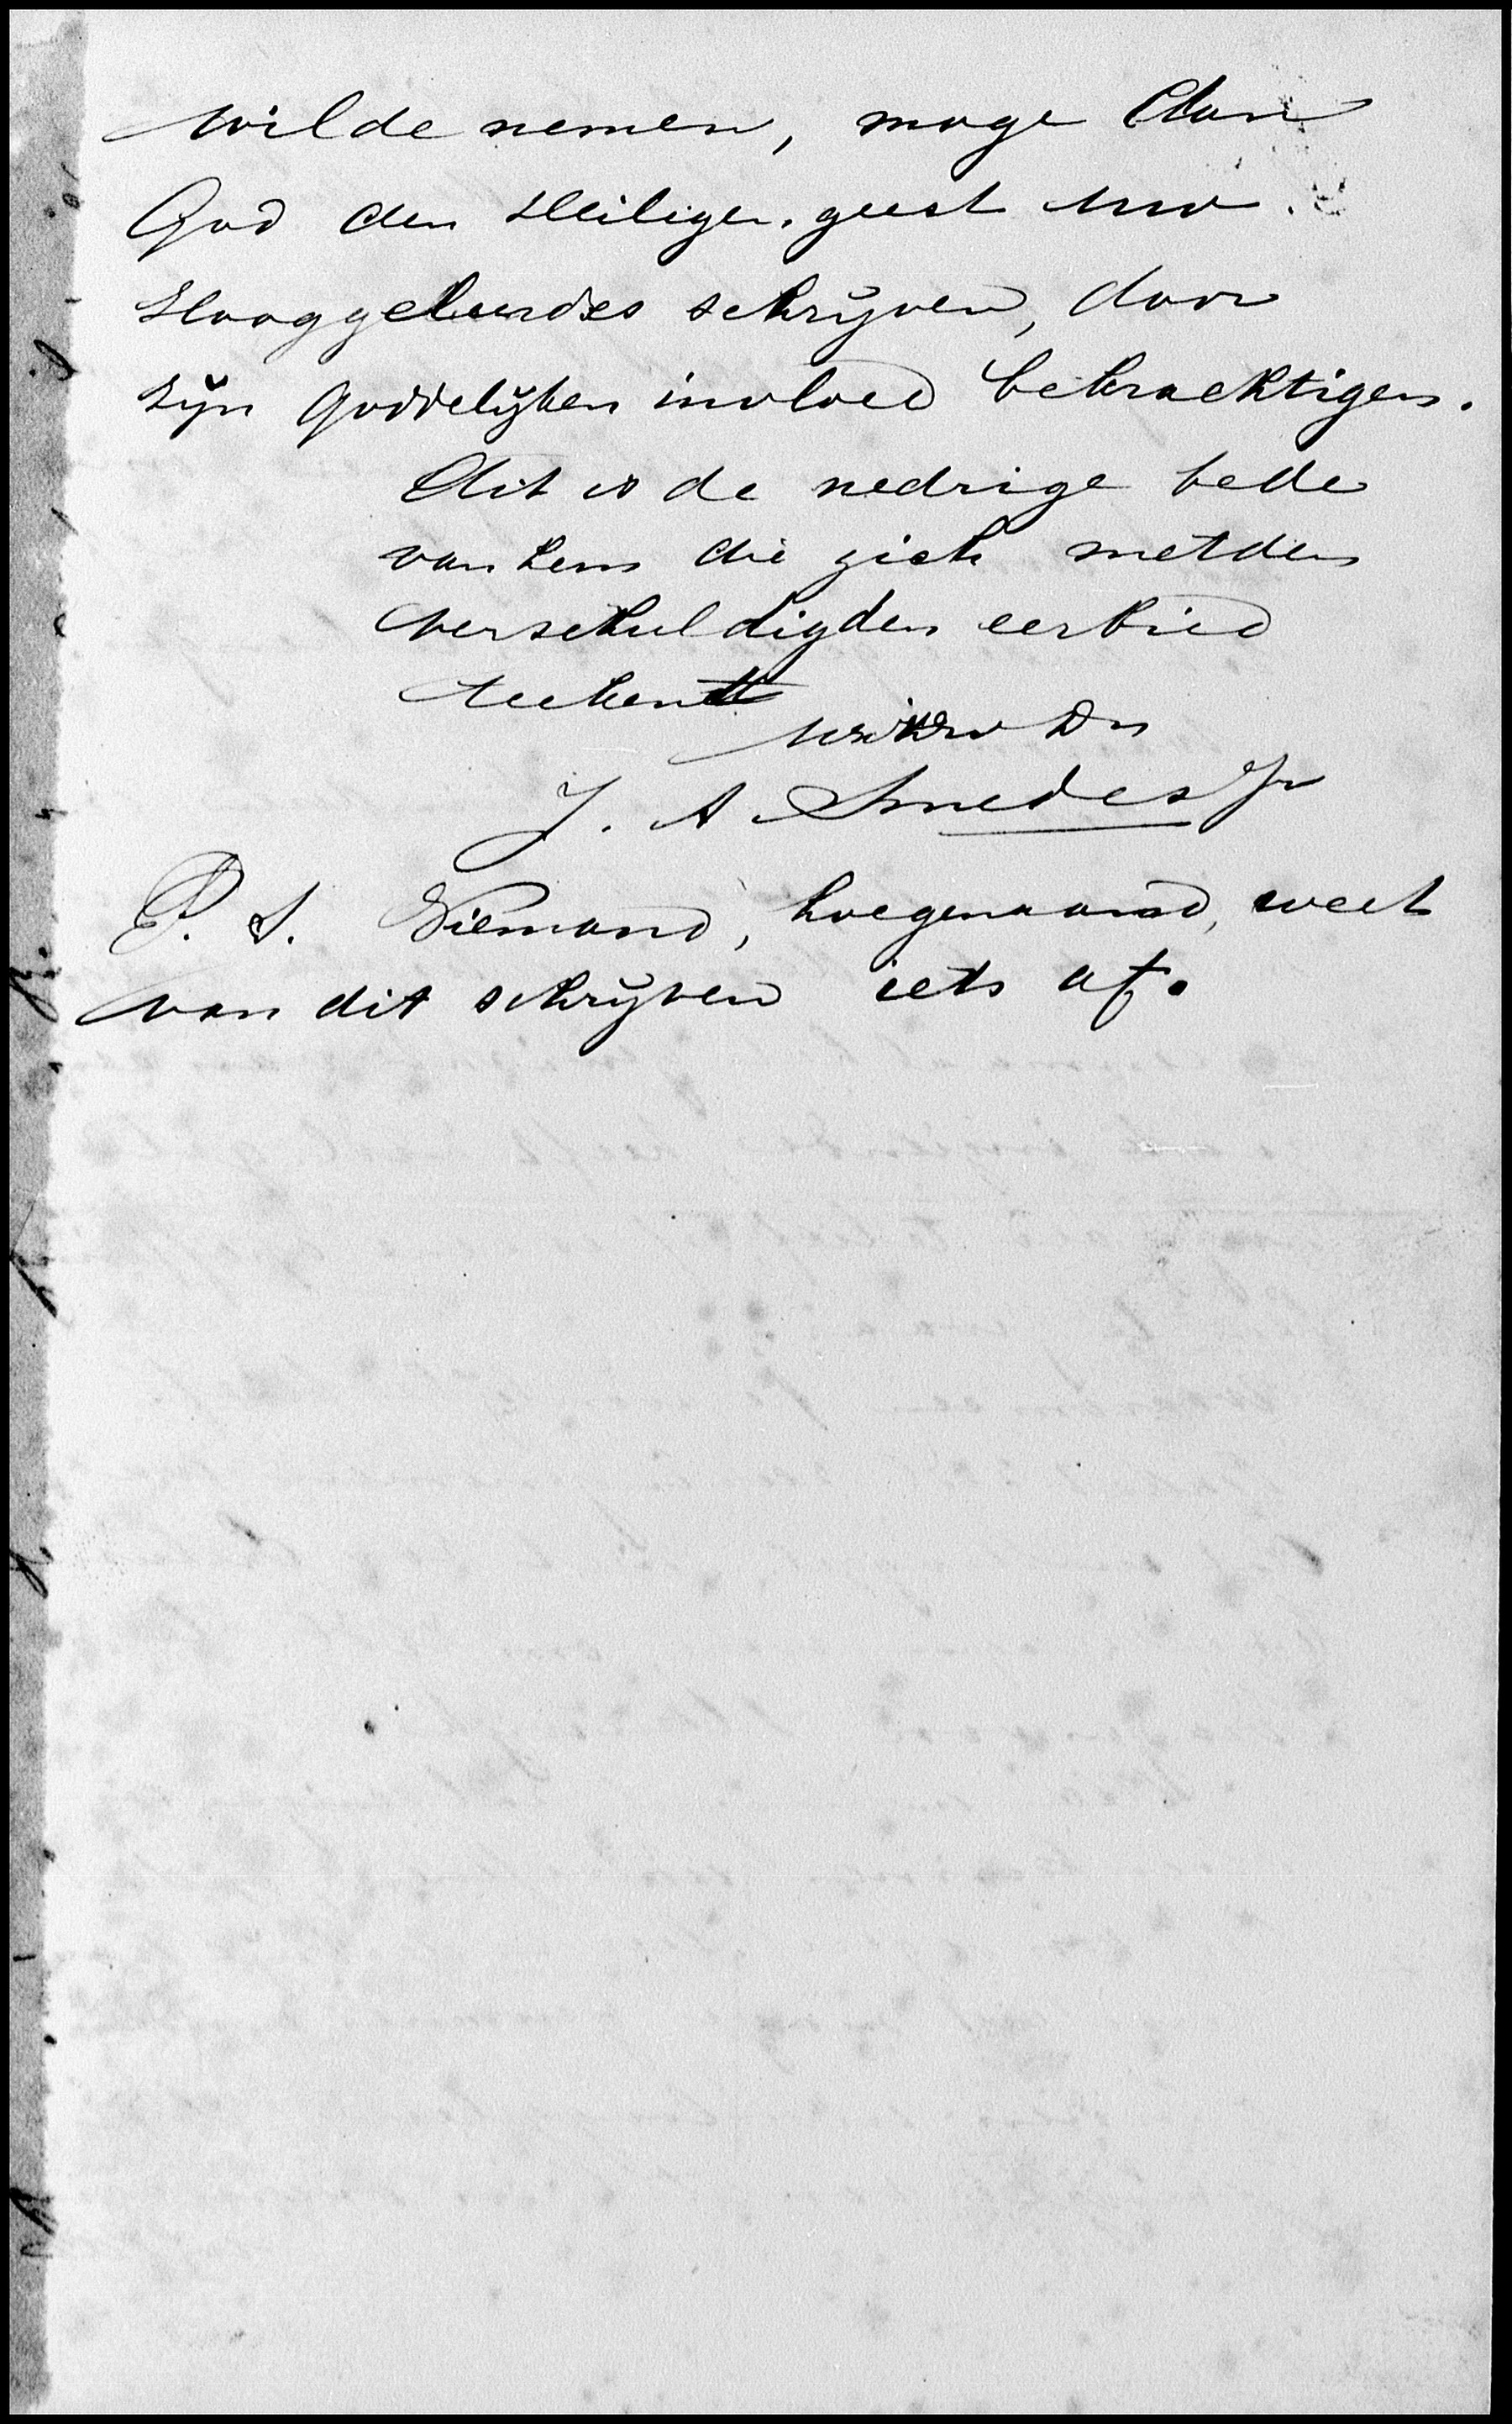 wilde nemen, moge dan
God den Heiligen geest uw
Hooggeleerdes schrijven, door
zijn Goddelijken invloed bekrachtigen.
Dit is de nedrige bede
van hem die zich met den
verschuldigden eerbied
teekent
Dr
J. A. Smedes Jr
P. S. Niemand, hoegenaamd, weet
van dit schrijven iets af.